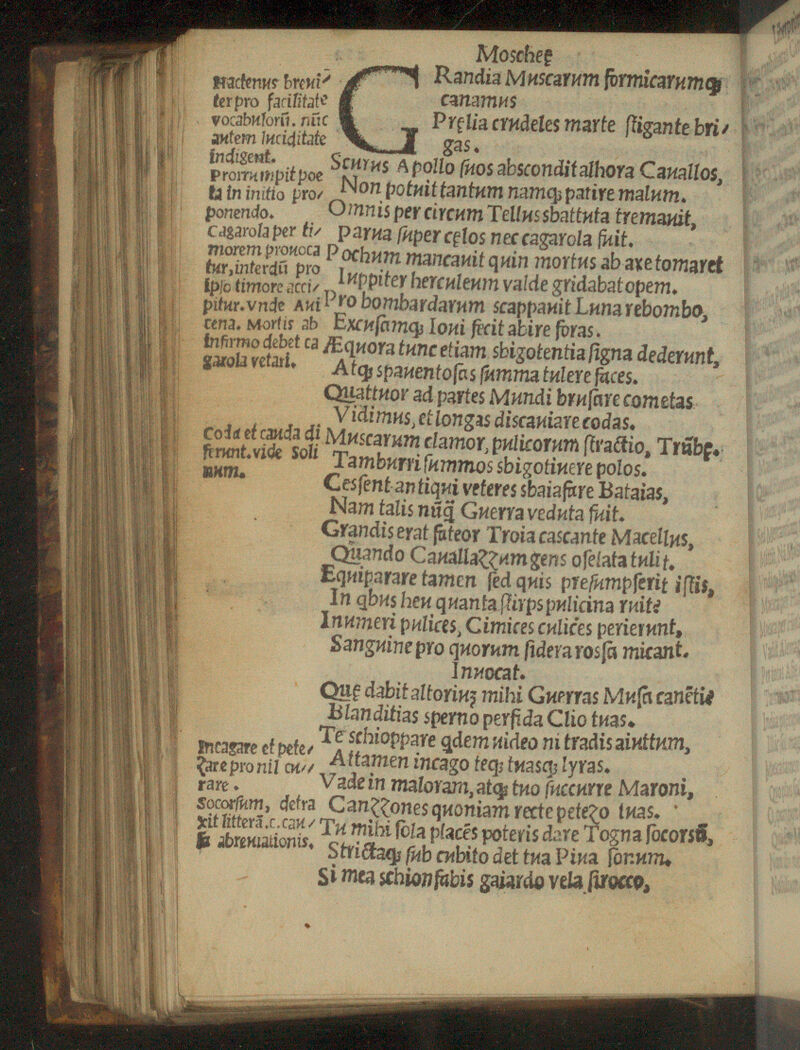 Moscheę
GRandia Muscarum formicarumqꝫ
canamus
Pręlia crudeles marte ſtigante bri⸗
gas.
Scurus Apollo ſuos abscondit alhora Cauallos,
Non potuit tantum namqꝫ patire malum.
Omnis per circum Tellus sbattuta tremauit,
Parua ſuper cęlos nec cagarola fuit.
Pochum mancauit quin mortus ab axe tomaret
Iuppiter herculeum valde gridabat opem.
Pro bombardarum scappauit Luna rebombo,
Excuſamqꝫ Ioui fecit abire foras.
Æquora tunc etiam sbigotentia ſigna dederunt,
Atqꝫ spauentoſas ſumma tulere faces.
Quattuor ad partes Mundi bruſare cometas
Vidimus, et longas discauiare codas.
Muscarum clamor, pulicorum ſtractio, Trũbę.
Tamburri ſummos sbigotinere polos.
Cesſent antiqui veteres sbaiafare Bataias,
Nam talis nũq̃ Guerra veduta fuit.
Grandis erat fateor Troia cascante Macellus,
Quando Cauallazzum gens ofelata tulit.
Equiparare tamen ſed quis preſumpſerit iſtis,
In qbus heu quanta ſtirps pulicina ruit?
Inumeri pulices, Cimices culices perierunt,
Sanguine pro quorum ſidera rosſa micant.
Inuocat.
Quę dabit altoriuꝫ mihi Guerras Muſa canẽti?
Blanditias sperno perfida Clio tuas.
Te schioppare qdem uideo ni tradis aiuttum,
Attamen incago teqꝫ tuasqꝫ lyras.
Vade in maloram, atqꝫ tuo ſuccurre Maroni,
Canzzones quoniam recte petezo tuas.
Tu mihi ſola placẽs poteris dare Togna ſocorsũ,
Strictaqꝫ ſub cubito det tua Piua ſonum.
Si mea schionfabis gaiardo vela ſirocco,
Hactenus breui⸗
ter pro facilitate
vocabulorũ. nũc
autem luciditate
indigent.
Prorrumpit poe
ta in initio pro⸗
ponendo.
Cagarola per ti⸗
morem prouoca
tur, interdũ pro
ipſo timore acci⸗
pitur. vnde Aui
cena. Mortis ab
infirmo debet ca
garola vetari.
Coda et cauda di
ferunt. vide Soli
num.
Incagare et pete⸗
zare pro nil cu⸗
rare.
Socorſum, detra
xit litterã. c. cau⸗
ſa abreuiationis.